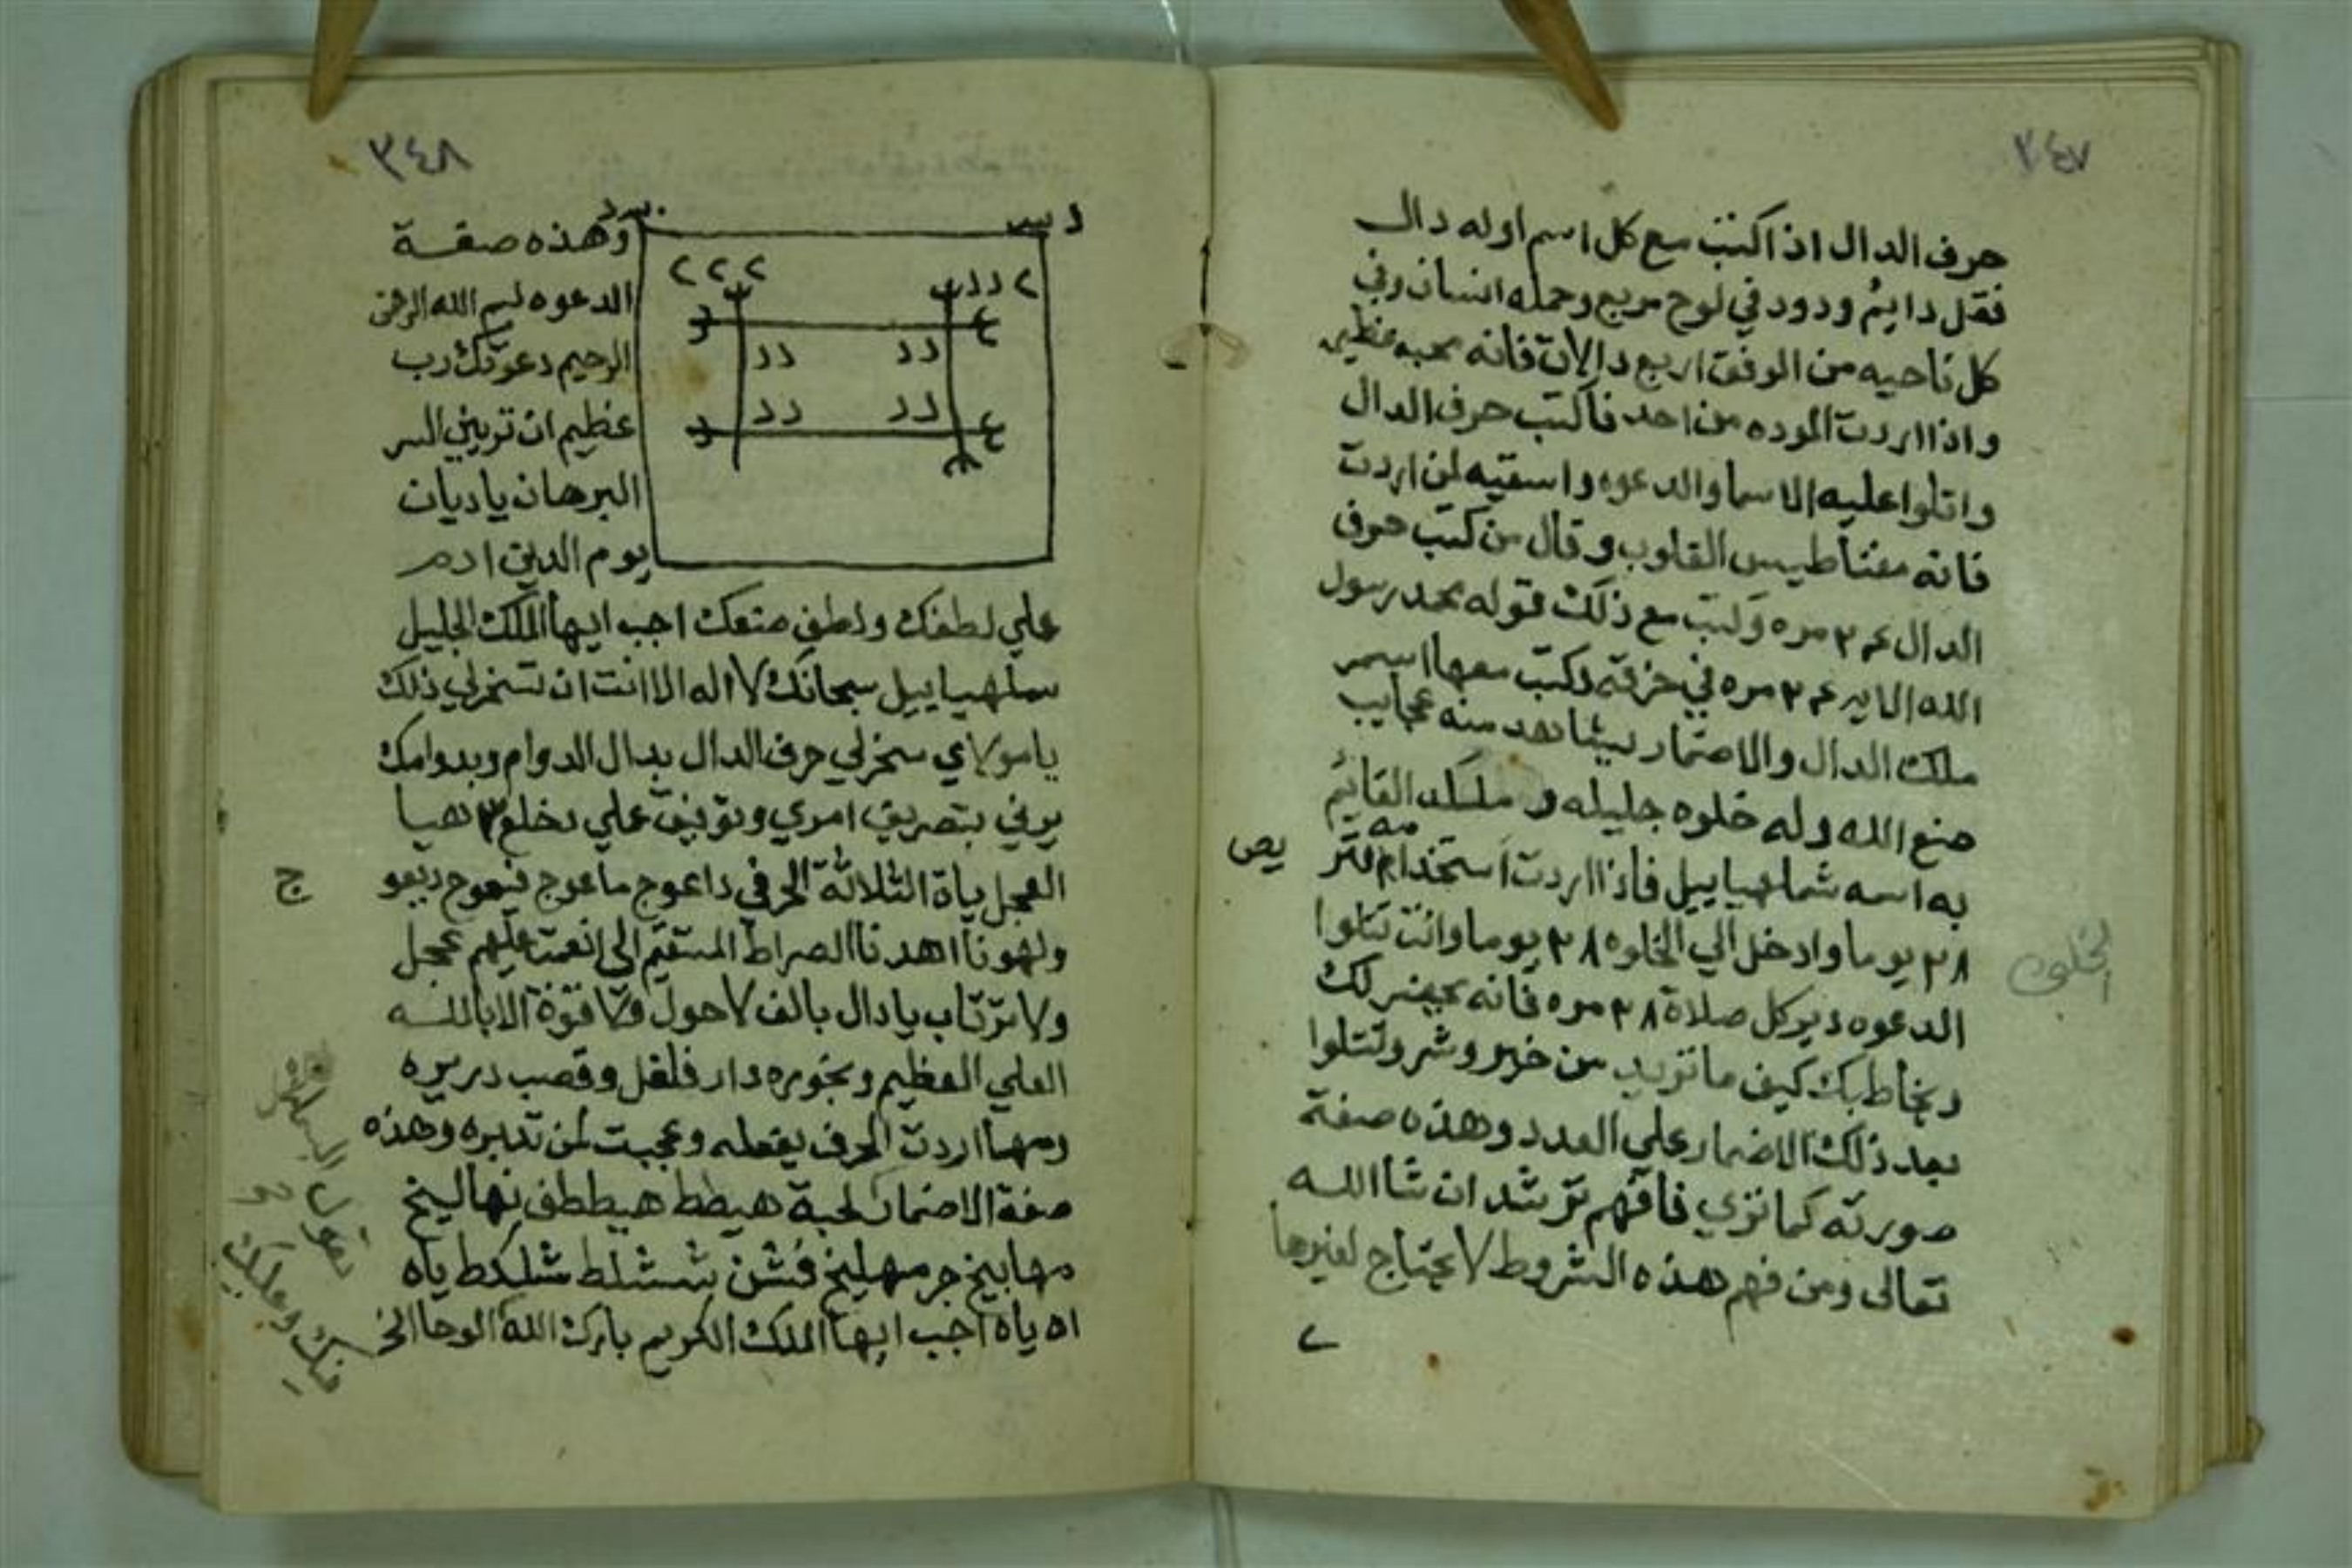 ٣٤٧
حرف الدال اذا كتب مع كل اسم اوله دال
فقل دايم ودود في لوح مربع وحمله انسان وفي
كل ناحيه من الوفق اربع دالات فانه محبه عظيم
واذا اردت الموده من احد فاكتب حرف الدال
واتلوا عليه الاسما والدعوه واسقيه لمن اردت
فانه مغناطيس القلوب وقال من كتب حرف
الدال مره وكتب مع ذلك قوله محمد رسول
الله مره في خرقه وكتب معها اسم
ملك الدال والاضمار يشاهد منه عجايب
صنع الله وله خلوه جليله و القايم
به اسمه شملهياييل فاذا اردت استخدامه
٢٨ يوما وادخل الي الخلوه ٢٨ يوما وانت تتلوا
الدعوه دبر كل صلاة ٢٨ مره فانه يحضر لك
ويخاطبك كيف ما تريد من خير وشر وتتلوا
بعد ذلك الاضمار علي العدد وهذه صفة
صورته كما تري فافهم ترشد ان شا الله
تعالى ومن فهم هذه الشروط لا يحتاج لغيرها
يص
الخلوه
٣٤٨
د د د
د د
د د
د د
د د
وهذه صفة
الدعوه بسم الله الرحمن
الرحيم دعوتك رب
عظيم ان تريني السر
البرهان يا ديان
يوم الدين ادم
علي لطفك ولطف صنعك اجب ايها الملك الجليل
سملهياييل سبحانك لا اله الا انت ان تسخر لي ذلك
يا مولاي سخر لي حرف الدال بدال الدوام وبدوامك
بتصريف امري وتوفيق علي ٣ هيا
العجل الثلاثة الحرفي داعوج ماعوج فيعوج
اهدنا الصراط المستقيم الى انعمت عليهم عجل
ولا ترتاب يا دال بالف لا حول ولا قوة الا بالله
العلي العظيم وبخوره دار فلفل وقصب دريره
ومهما اردت الحرف يفعله وعجبت لمن تدبره وهذه
صفة الاضمار هيطط هيططف نهاليخ
مهابيخ جرمهليخ فشن شششلط شلكط ياه
اه ياه اجب ايها الملك الكريم بارك الله الوحا الخ
ج
تقول
فيك وعليك